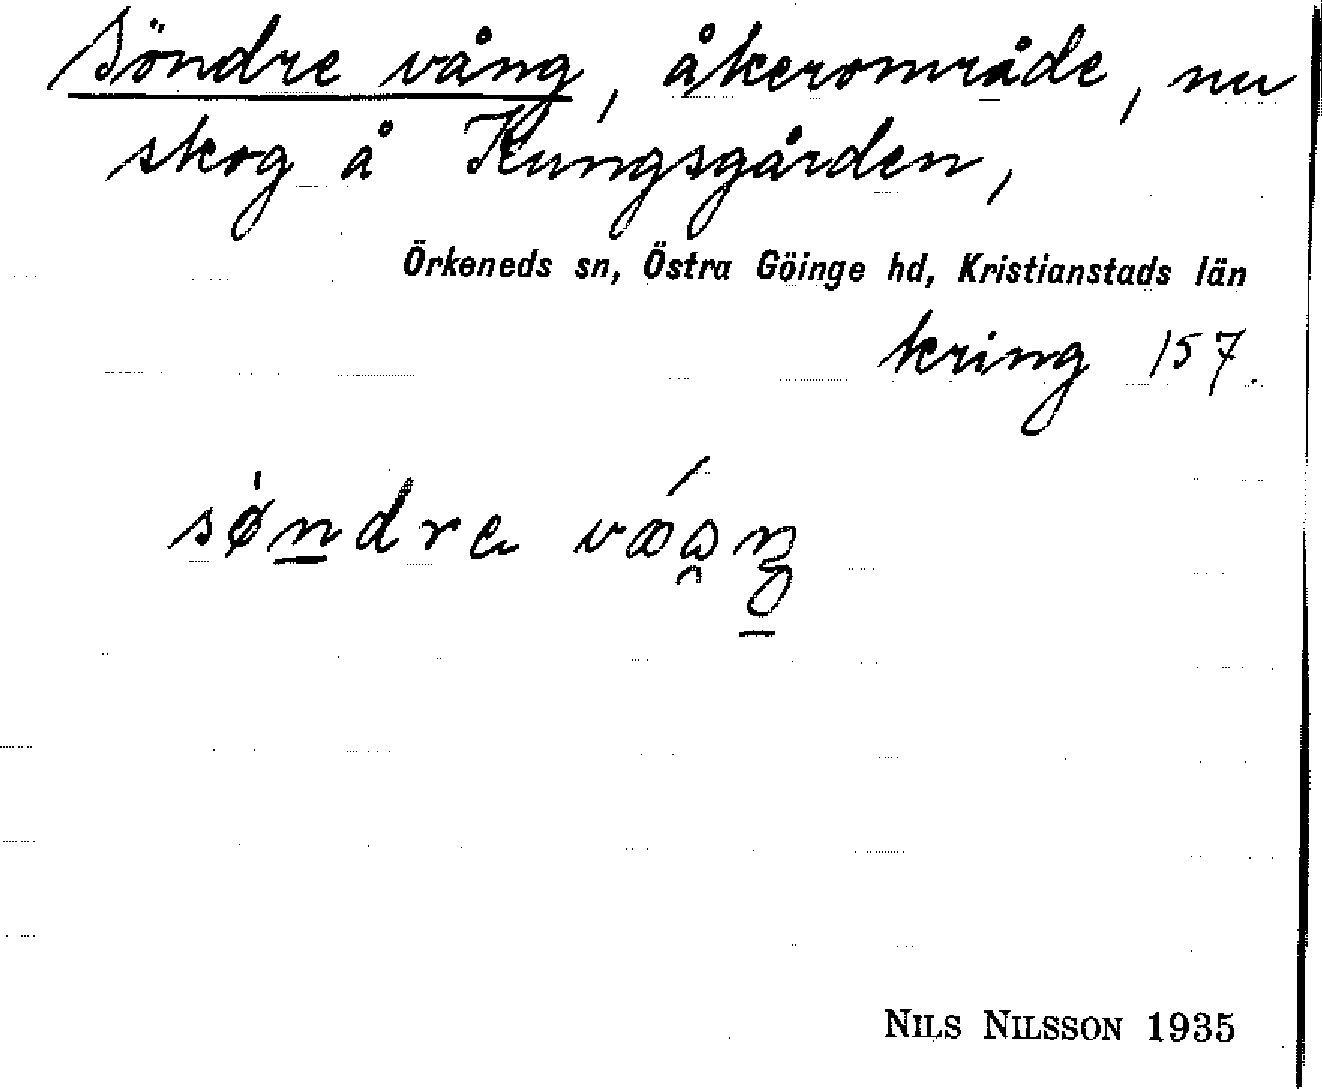 Söndre vång, åkerområde, nu
skog å Kungsgården,
Örkeneds sn, Östra Göinge hd, Kristianstads län
kring 157.
søndre
NILS NILSSON 1935